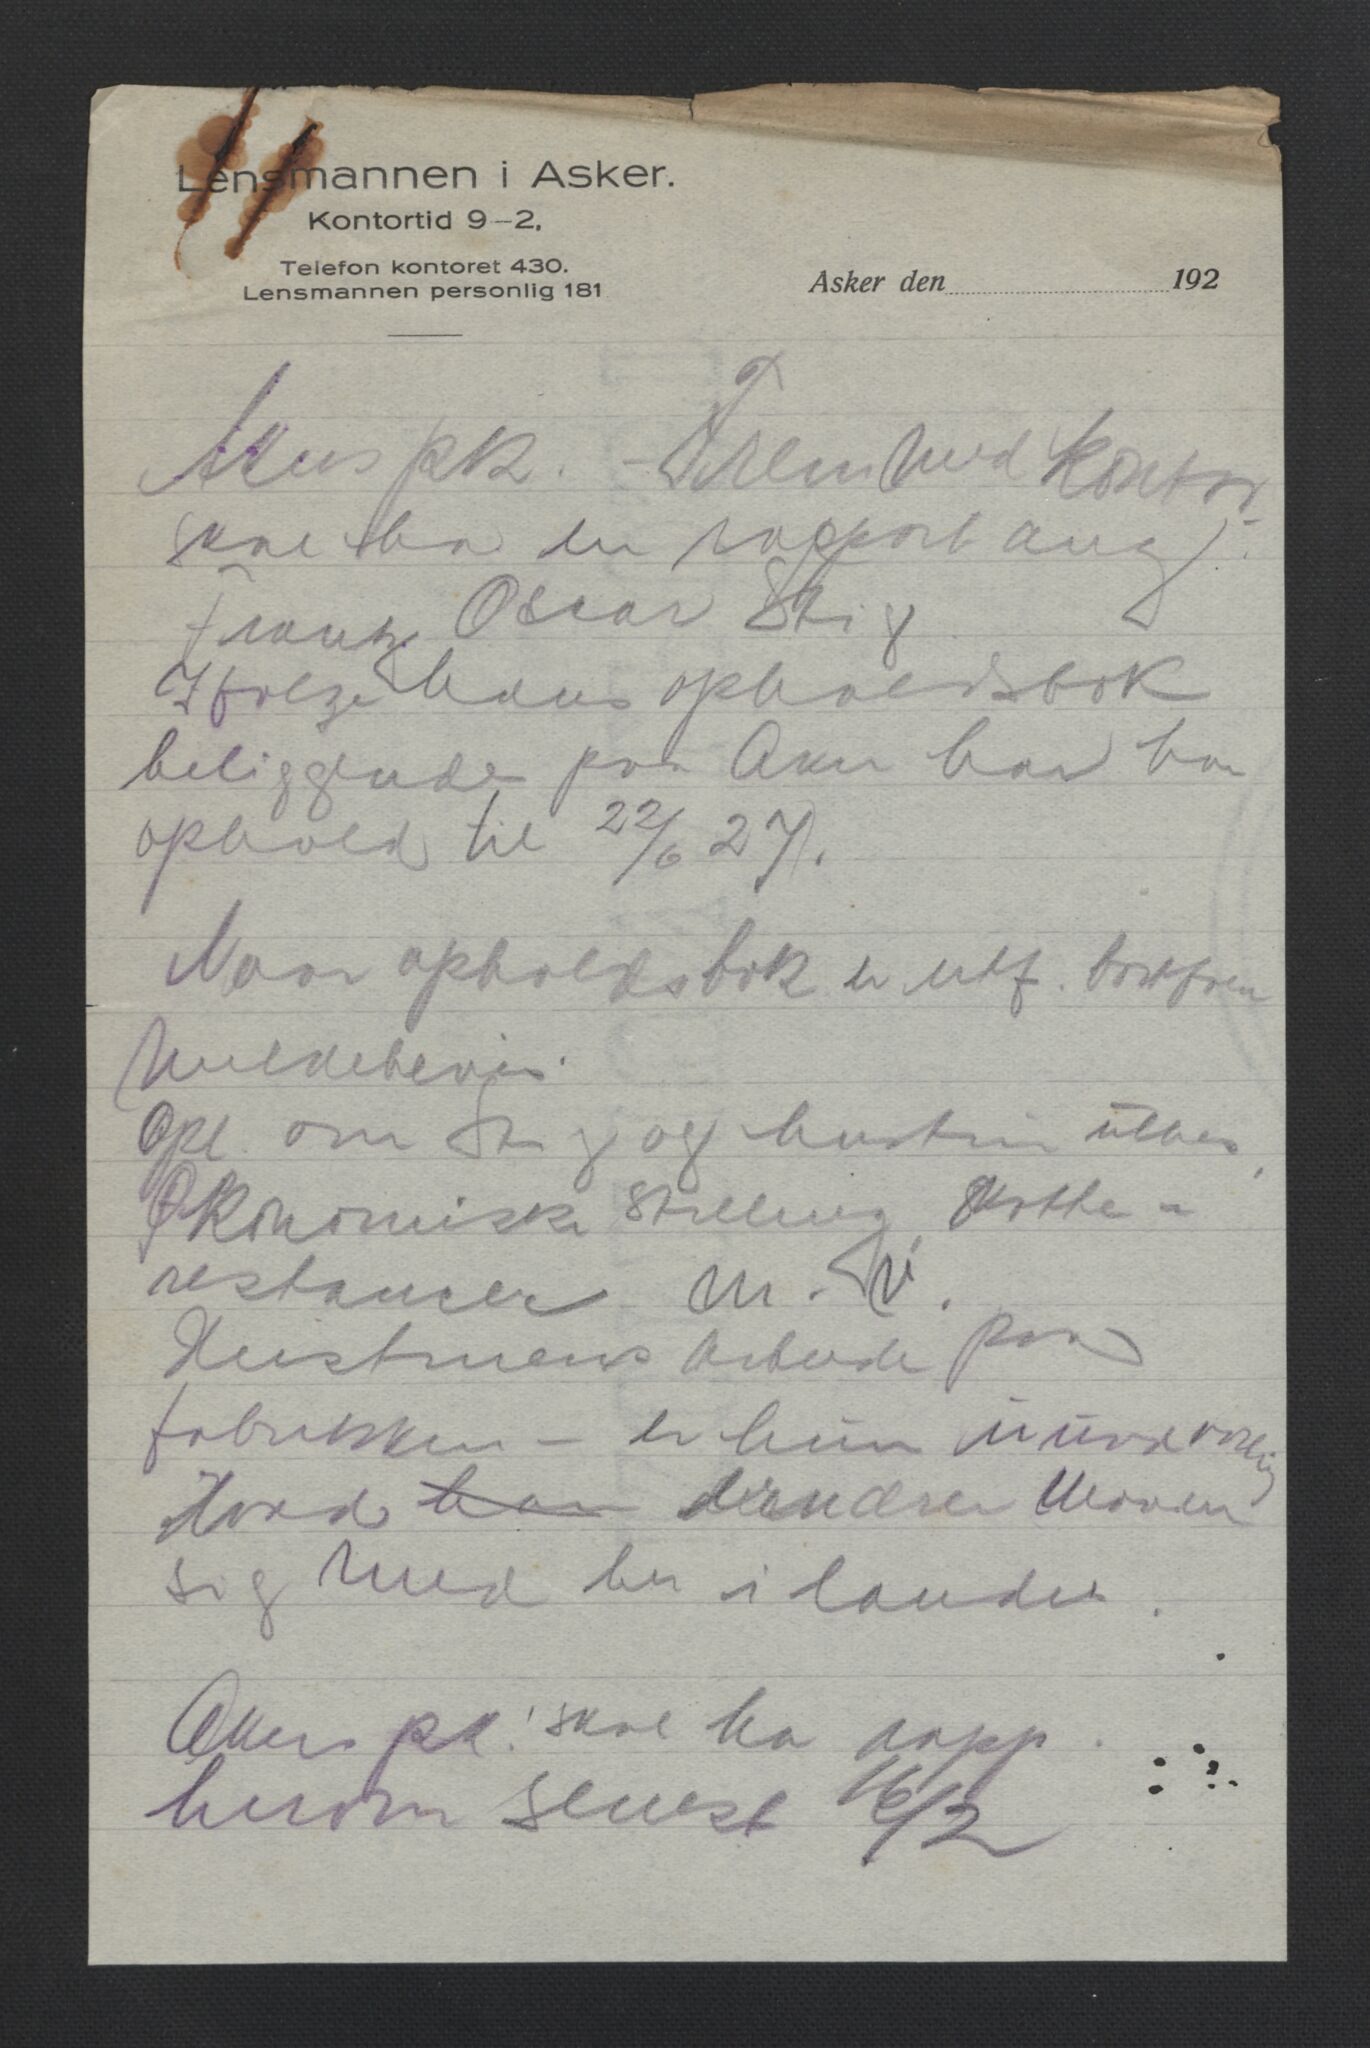 Lensmannen i Asker.
Kontortid 9–2,
Telefon kontoret 430.
Lensmannen personlig 181
Asker den 192
Akers pk. - Fremmedkontor
skal ha en rapport ang.
Frantz Oscar Stig
Ifølge hans opholdsbok
beliggende paa Aker har han
ophold til 22/6 27.
Naar opholdsbok er utf. bortfaller
meldebevis.
Opl. om Stig og hustru utbes,
Økonomiske Stilling, Skatte-
restancer m. v.
Hustruens Arbeide paa
fabrikken – er hun uundværlig
Hvad han ernærer Manden
sig med her i landet.
Akers pk. skal ha rapp.
herom senest 16/2